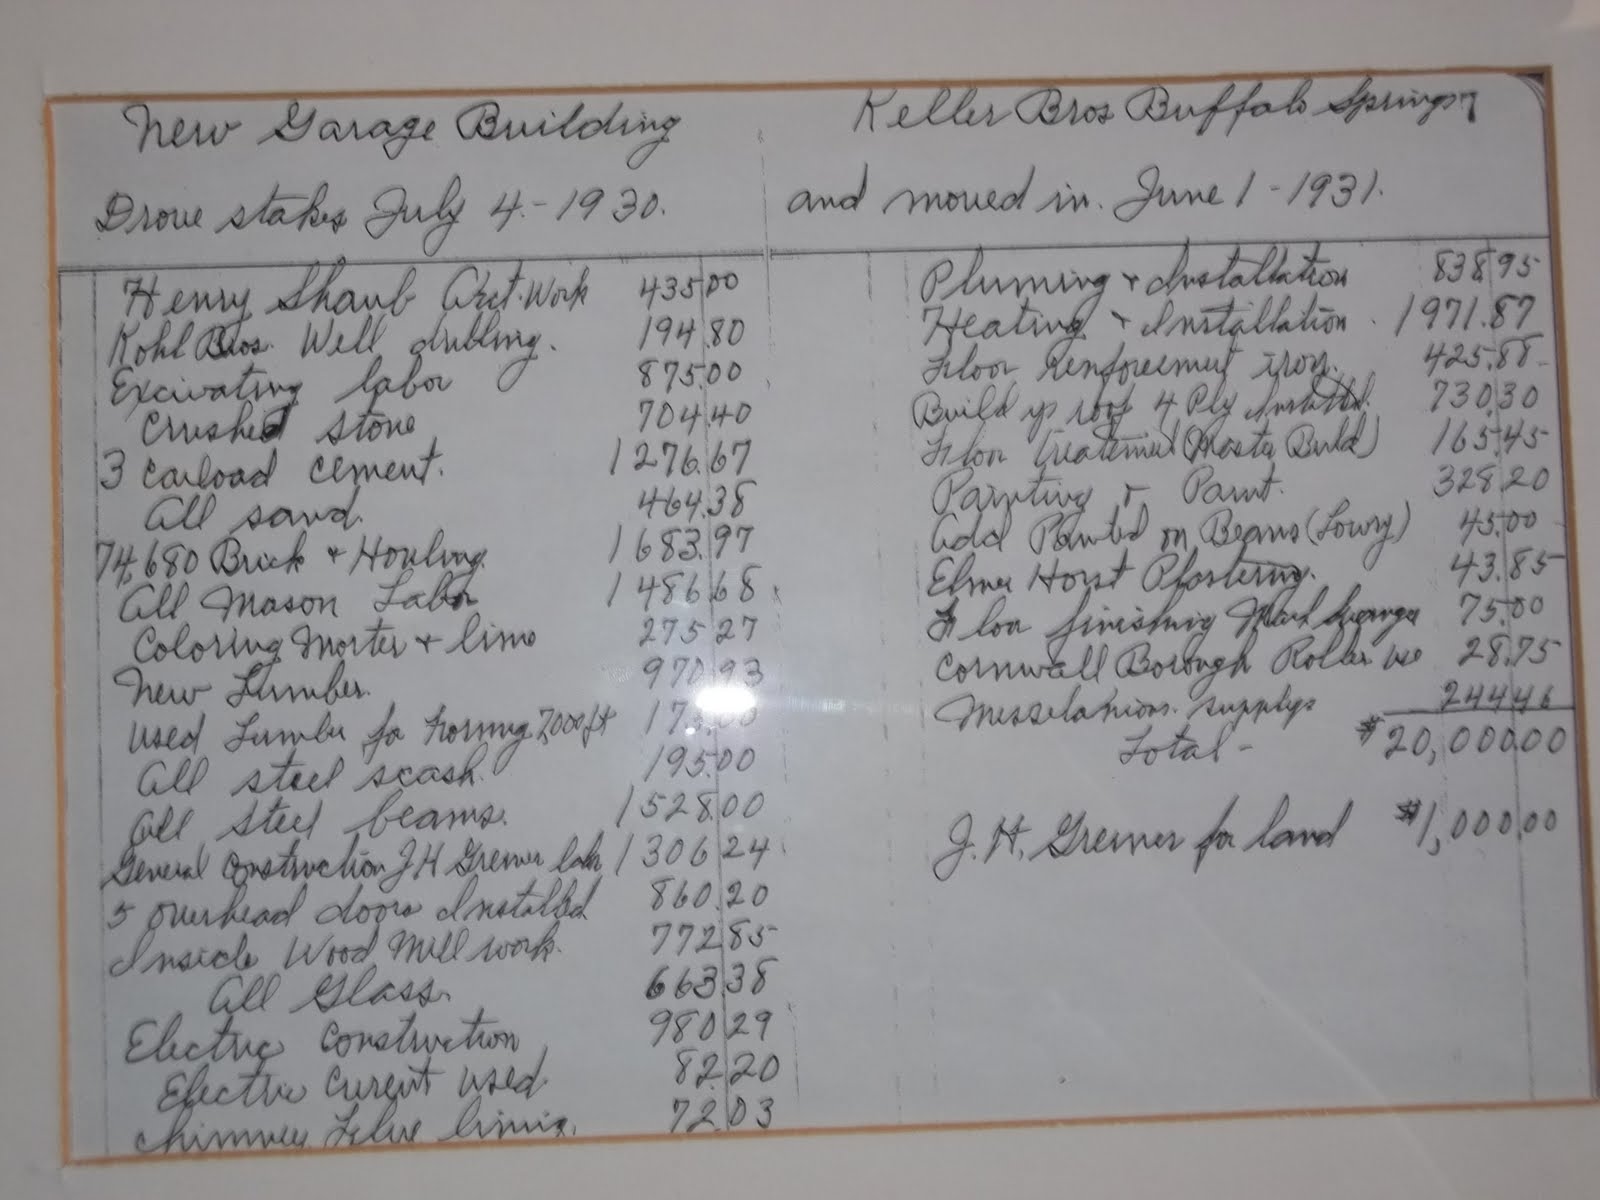 New Garage Building
Drove stakes July 4-1930.
Henry Shaub Arct. Work 435.00
Kohl Bros. Well drilling. 194.80
Excivating labor 875.00
Crushed stone 704.40
3 carload cement. 1276.67
All sand. 464.38
74,680 Brick + Houling. 1683.97
All Mason Labor 1486.68
Coloring Morter + lime 275.27
New Lumber. 970.93
Used Lumber for Forming 7,000 ft
All steel scash. 195.00
All steel beams. 1528.00
General Construction J H Greiner labr 1306.24
5 overhead doors Installed 860.20
Inside Wood Mill work. 772.85
All Glass. 663.38
Electric Construction 980.29
Electric Current used. 82.20
Chimney Flue lining. 72.03
Keller Bros Buffalo Springs
and moved in. June 1-1931.
Pluming + Installation 838.95
Heating + Installation. 1971.87
Floor Renforcement iron. 425.88
Build up roof 4 Ply Installed. 730.30
Floor Treatment (Master Build) 165.45
Painting + Paint. 328.20
Add Painted on Beams (Lowry) 45.00
Elmer Horst Plastering. 43.85
Floor finishing 75.00
Cornwall Borough Roller use 28.75
Misselanious supplys 244.46
Total - $20,000.00
J. H. Greiner for land $1,000.00